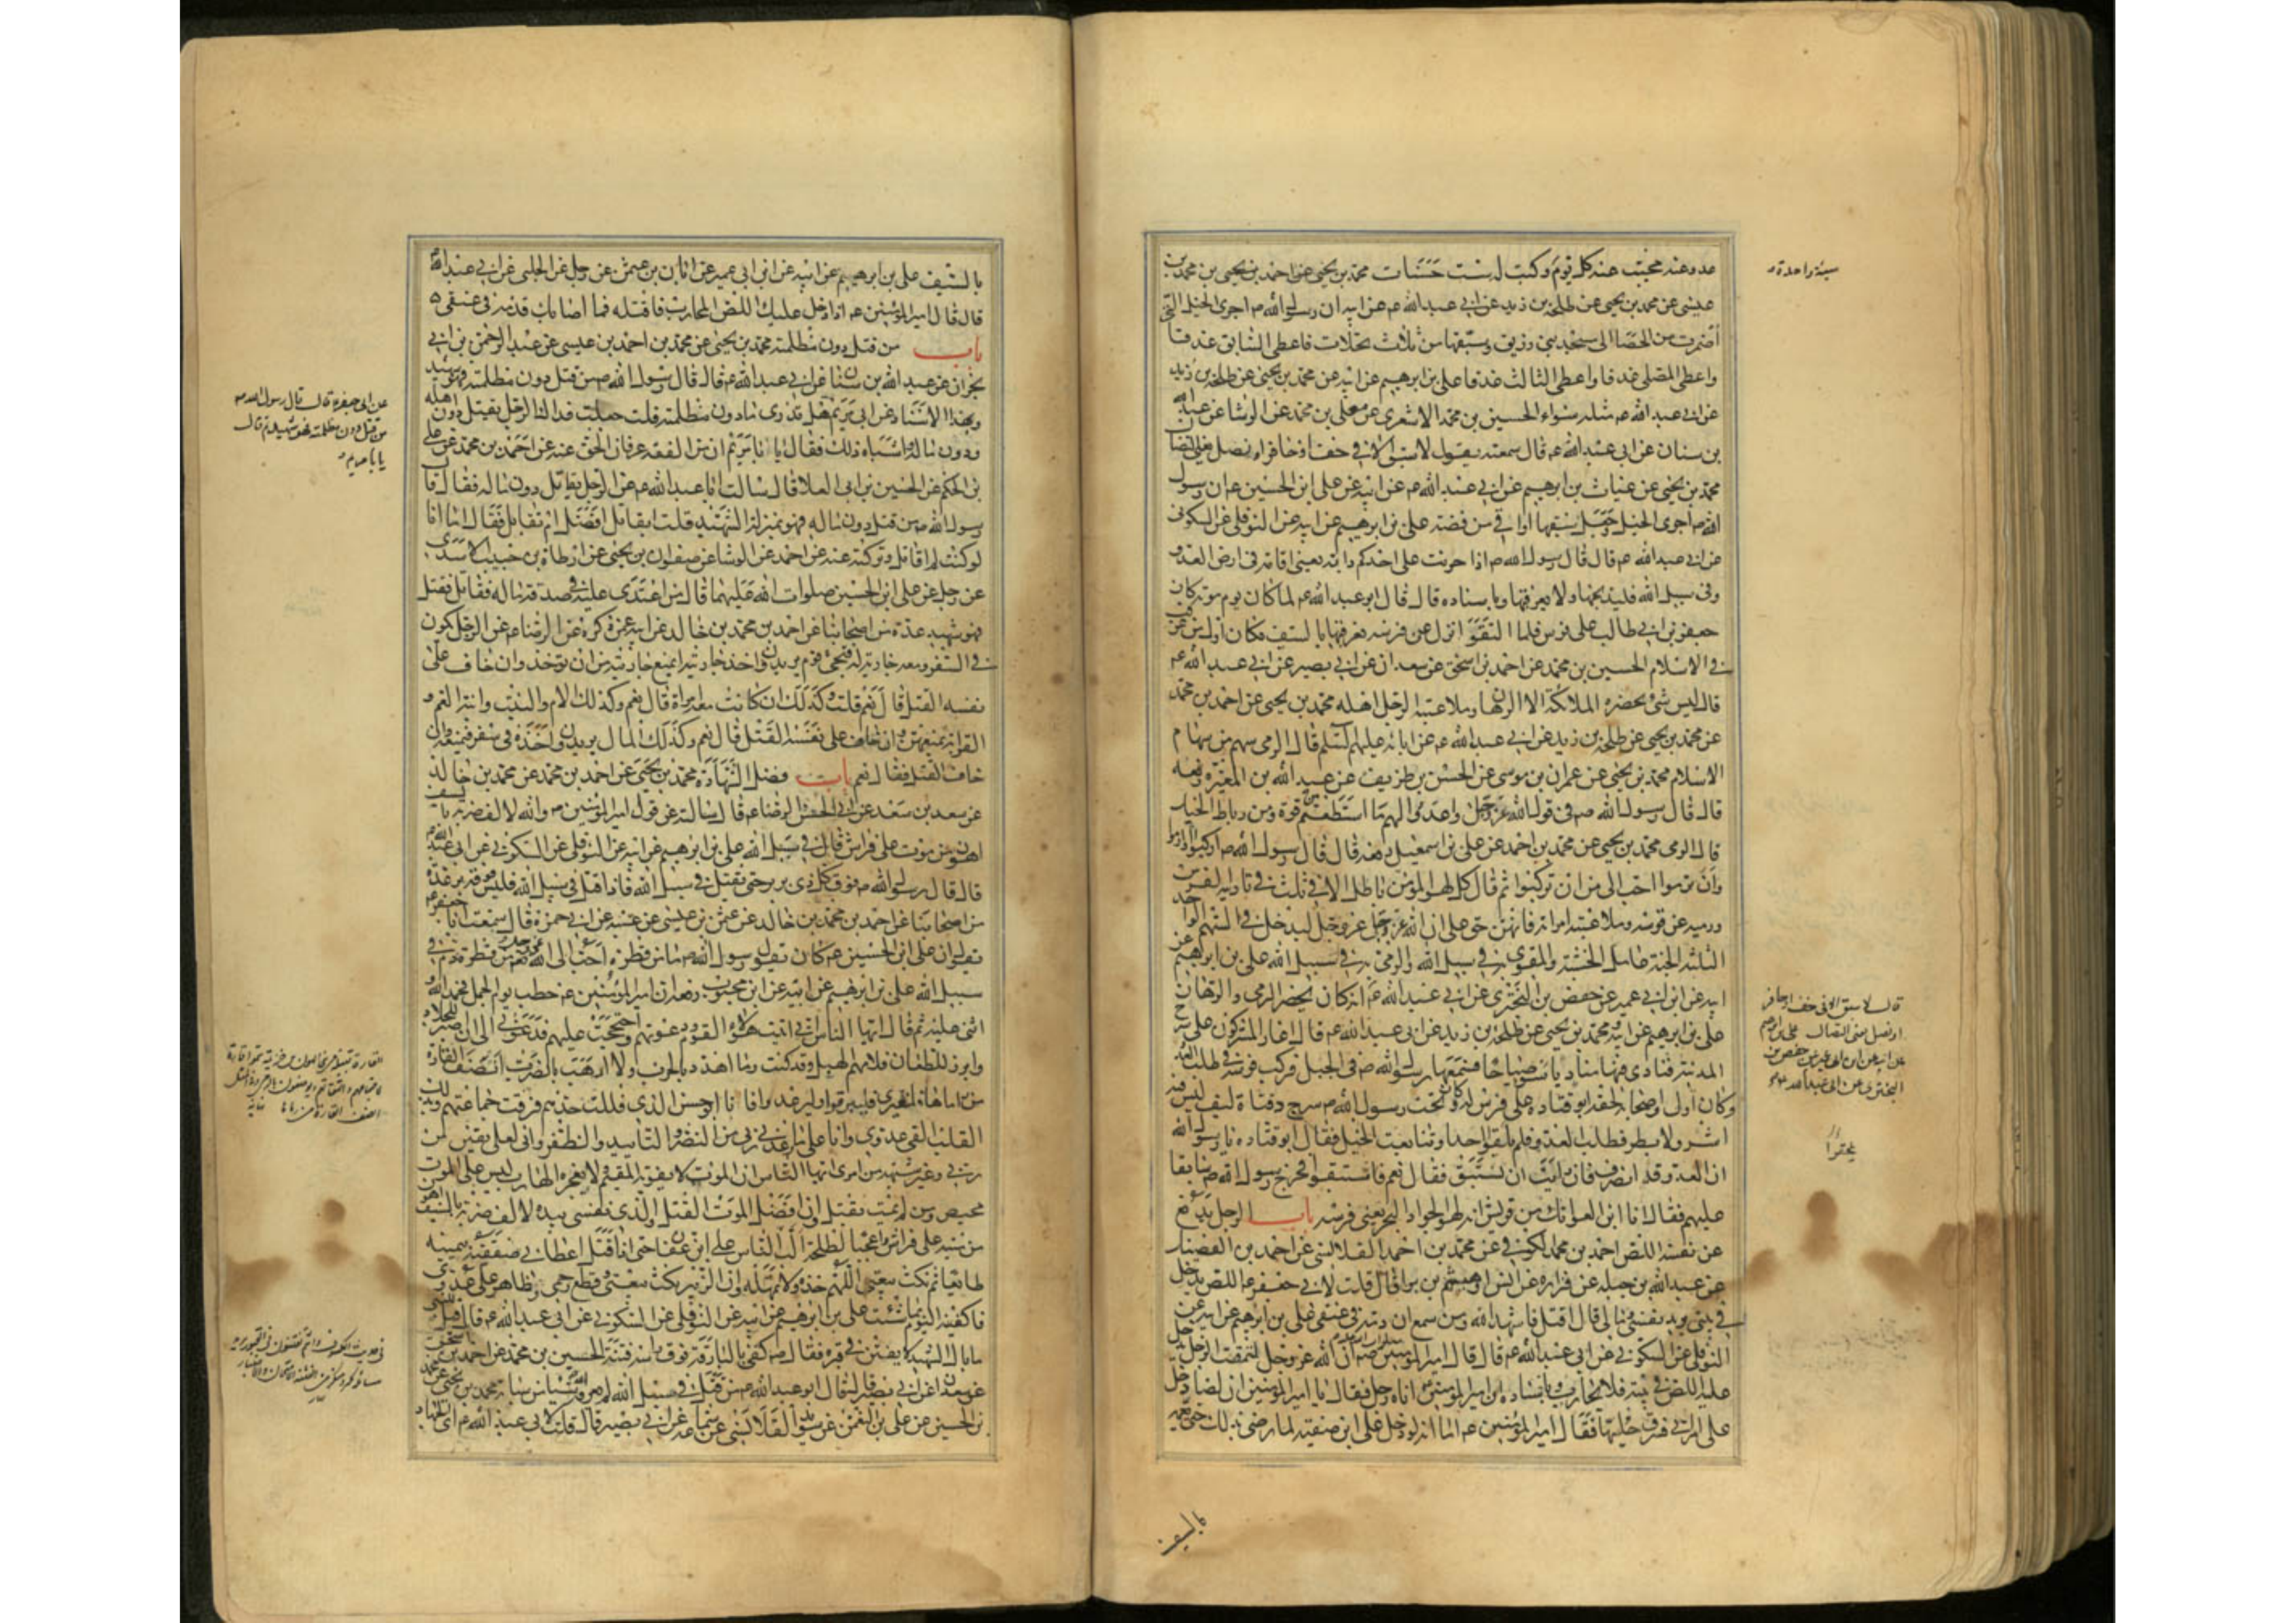 عدوه عنه محيت عنه كل يوم وكتبت له ست حسنات محمد بن يحيى عن احمد بن يحيى بن محمد بن
عيسى عن محمد بن يحيى عن طلحة بن زيد عن ابي عبد الله ع عن ابيه ان رسول الله ص اجرى الخيل التي
أضمرت من الحصا الى مسجد بني زريق وسبقها من ثلاث نخلات فاعطى السابق عذقا
واعطى المصلى عذقا واعطى الثالث عذقا علي بن ابرهيم عن ابيه عن محمد بن يحيى عن طلحة بن زيد
عن ابي عبد الله ع مثله سواء الحسين بن محمد الاشعري عن معلى بن محمد عن الوشا عن عبد الله
بن سنان عن ابي عبد الله ع قال سمعته يقول لا سبق الا في خف او حافر او نصل يعني النضال
محمد بن يحيى عن غياث بن ابرهيم عن ابي عبد الله ع عن ابيه عن علي ابن الحسين ع ان رسول
الله ص اجرى الخيل وجعل سبقها اواقي من فضة علي بن ابرهيم عن ابيه عن النوفلي عن السكوني
عن ابي عبد الله ع قال قال رسول الله ص اذا حرنت على احدكم دابته يعني اقامت في ارض العدو
وفي سبيل الله فليذبحها ولا يعرقبها وباسناده قال قال ابو عبد الله ع لما كان يوم موته كان
جعفر بن ابي طالب على فرس فلما التقوا نزل عن فرسه فعرقبها بالسيف فكان اول من عرقب
في الاسلام الحسين بن محمد عن احمد بن اسحق عن سعدان عن ابي بصير عن ابي عبد الله ع
قال ليس شئ يحضره الملائكة الا الرهان وملاعبة الرجل اهله محمد بن يحيى عن احمد بن محمد
عن محمد بن يحيى عن طلحة بن زيد عن ابي عبد الله ع عن ابائه عليهم السلم قال الرمي سهم من سهام
الاسلام محمد بن يحيى عن عمران بن موسى عن الحسن بن طريف عن عبد الله بن المغيرة رفعه
قال قال رسول الله ص في قول الله عز وجل واعدوا لهم ما استطعتم من قوة ومن رباط الخيل
قال الرمي محمد بن يحيى عن محمد بن احمد عن علي بن اسمعيل رفعه قال قال رسول الله ص اركبوا وارموا
وان ترموا احب الي من ان تركبوا ثم قال كل لهو المؤمن باطل الا في ثلث في تاديبه الفرس
ورميه عن قوسه وملاعبته امراته فانهن حق الا ان الله عز وجل ليدخل في السهم الواحد
الثلثة الجنة عامل الخشبة والمقوي به في سبيل الله والرامي به في سبيل الله علي بن ابرهيم عن
ابيه عن ابن ابي عمير عن حفص بن البختري عن ابي عبد الله ع انه كان يحضر الرمي والرهان
علي بن ابرهيم عن ابيه محمد بن يحيى عن طلحة بن زيد عن ابي عبد الله ع قال اغار المشركون على سرح
المدينة فنادى فيها مناد يا سوء صباحاه فسمعها رسول الله ص في الجبل فركب فرسه في طلب العدو
وكان اول اصحابه لحقه ابو قتادة على فرس له وكان تحت رسول الله ص سرج دفتاه ليف ليس فيه
اشر ولا بطر فطلب العدو فلم يلقوا احدا وتتابعت الخيل فقال ابو قتاده يا رسول الله
ان العدو قد انصرف فان رايت ان نستبق فقال نعم فاستبقوا فخرج رسول الله ص سابقا
عليهم فقال انا ابن العواتك من قريش انه لهو الجواد البحر يعني فرسه باب الرجل يدفع
عن نفسه اللص احمد بن محمد الكوفي عن محمد بن احمد القلانسي عن احمد بن الفضيل
عن عبد الله بن جبله عن فزاره عن انس او هيثم بن برا قال قلت لابي جعفر ع اللص يدخل
في بيتي يريد نفسي ومالي قال اقتل فاشهد الله ومن سمع ان دمه في عنقي علي بن ابرهيم عن ابيه عن
النوفلي عن السكوني عن ابي عبد الله ع قال قال امير المؤمنين ص ان الله عز وجل ليمقت الرجل يدخل
عليه اللص في بيته فلا يحارب وباسناده ان امير المؤمنين اتاه رجل فقال يا امير المؤمنين ان لصا دخل
على امراتي فسرق حليها فقال امير المؤمنين ع اما انه لو دخل على ابن صفيه لما رضي بذلك حتى يعمه
بالسيف
سيئة واحدة
قال لا سبق الا في خف او حافر
او نصل يعني النضال علي بن ابرهيم
عن ابيه عن ابن ابي عمير عن حفص بن
البختري عن ابي عبد الله ع
بالسيف علي بن ابرهيم عن ابيه عن ابن ابي عمير عن ابان بن عثمن عن رجل عن الحلبي عن ابي عبد الله ع
قال قال امير المؤمنين ع اذا دخل عليك اللص المحارب فاقتله فما اصابك فدمه في عنقي
باب من قتل دون مظلمته محمد بن يحيى عن محمد بن احمد بن عيسى عن عبد الرحمن بن ابي
نجران عن عبد الله بن سنان عن ابي عبد الله ع قال قال رسول الله ص من قتل دون مظلمته فهو شهيد
وبهذا الاسناد عن ابي مريم هل تدري ما دون مظلمته قلت جعلت فداك الرجل يقتل دون اهله
ودون ماله واشباه ذلك فقال يا با مريم ان من الفقه عرفان الحق عنه عن احمد بن محمد عن علي
بن الحكم عن الحسين بن ابي العلا قال سالت ابا عبد الله ع عن الرجل يقاتل دون ماله فقال قال
رسول الله ص من قتل دون ماله فهو بمنزلة الشهيد قلت ايقاتل افضل ام لم يقاتل فقال اما انا
لو كنت لم اقاتل وتركته عنه عن احمد عن الوشا عن صفوان بن يحيى عن ارطاة بن حبيب الاسدي
عن رجل عن علي ابن الحسين صلوات الله عليهما قال من اعتدي عليه في صدقة ماله فقاتل فقتل
فهو شهيد عدة من اصحابنا عن احمد بن محمد بن خالد عن ابيه عمن ذكره عن الرضا ع عن الرجل يكون
في السفر ومعه جارية له فيجئ قوم يريدون اخذ جاريته ايمنع جاريته من ان توخذ وان خاف على
نفسه القتل قال نعم قلت وكذلك ان كانت معه امراة قال نعم وكذلك الام والبنت وابنة العم و
القرابة يمنعهن وان خاف على نفسه القتل قال نعم وكذلك المال يريدون اخذه في سفر فيمنعه وان
خاف القتل فقال نعم باب فضل الشهادة محمد بن يحيى عن احمد بن محمد عن محمد بن خالد
عن سعد بن سعد عن ابي الحسن الرضا ع قال سالته عن قول امير المؤمنين ص والله لالف ضربة بالسيف
اهون من موت على فراش قال في سبيل الله علي بن ابرهيم عن ابيه عن النوفلي عن السكوني عن ابي عبد الله ع
قال قال رسول الله ص فوق كل ذي بر بر حتى يقتل في سبيل الله فاذا قتل في سبيل الله فليس فوقه بر عدة
من اصحابنا عن احمد بن محمد بن خالد عن عثمن بن عيسى عن عنبسه عن ابي حمزة قال سمعت ابا جعفر ع
يقول ان علي ابن الحسين ع كان يقول رسول الله ص ما من قطرة احب الى الله عز وجل من قطرة دم في
سبيل الله علي بن ابرهيم عن ابيه عن ابن محبوب رفعه ان امير المؤمنين ع خطب يوم الجمل فحمد الله و
اثنى عليه ثم قال ايها الناس اني اتيت هؤلاء القوم ودعوتهم واحتججت عليهم فدعوني الى ان اصبر للجلاد
وابرز للطعان فلامهم الهبل وقد كنت وما اهدد بالحرب ولا ارهب بالضرب انصف القارة
من راماها فلغيري فليبرقوا وليرعدوا فانا ابو حسن الذي فللت حدهم وفرقت جماعتهم وبذلك
القلب القى عدوي وانا على ما وعدني ربي من النصر والتاييد والظفر واني لعلى يقين من
ربي وغير شبهة من امري ايها الناس ان الموت لا يفوته المقيم ولا يعجزه الهارب ليس على الموت
محيص ومن لم يمت يقتل وان افضل الموت القتل والذي نفسي بيده لالف ضربة بالسيف اهون
من ميتة على فراش واعجبا لطلحة الب الناس على ابن عفان حتى اذا قتل اعطاني صفقته بيمينه
طايعا ثم نكث بيعتي اللهم خذه ولا تمهله وان الزبير نكث بيعتي وقطع رحمي وظاهر على عدوي
فاكفنيه اليوم بما شئت علي بن ابرهيم عن ابيه عن النوفلي عن السكوني عن ابي عبد الله ع قال قيل للنبي ص
ما بال الشهيد لا يفتن في قبره فقال ص كفى بالبارقة فوق راسه فتنة الحسين بن محمد عن احمد بن اسحق
عن سعدان عن ابي بصير قال قال ابو عبد الله ع من قتل في سبيل الله لم يعرفه الله شيئا من سياته محمد بن يحيى عن محمد
بن الحسين عن علي بن النعمن عن سويد القلانسي عن سماعه عن ابي بصير قال قلت لابي عبد الله ع اي الجهاد
عن ابي جعفر ع قال قال رسول الله ص
من قتل دون مظلمته فهو شهيد ثم قال
يا با مريم